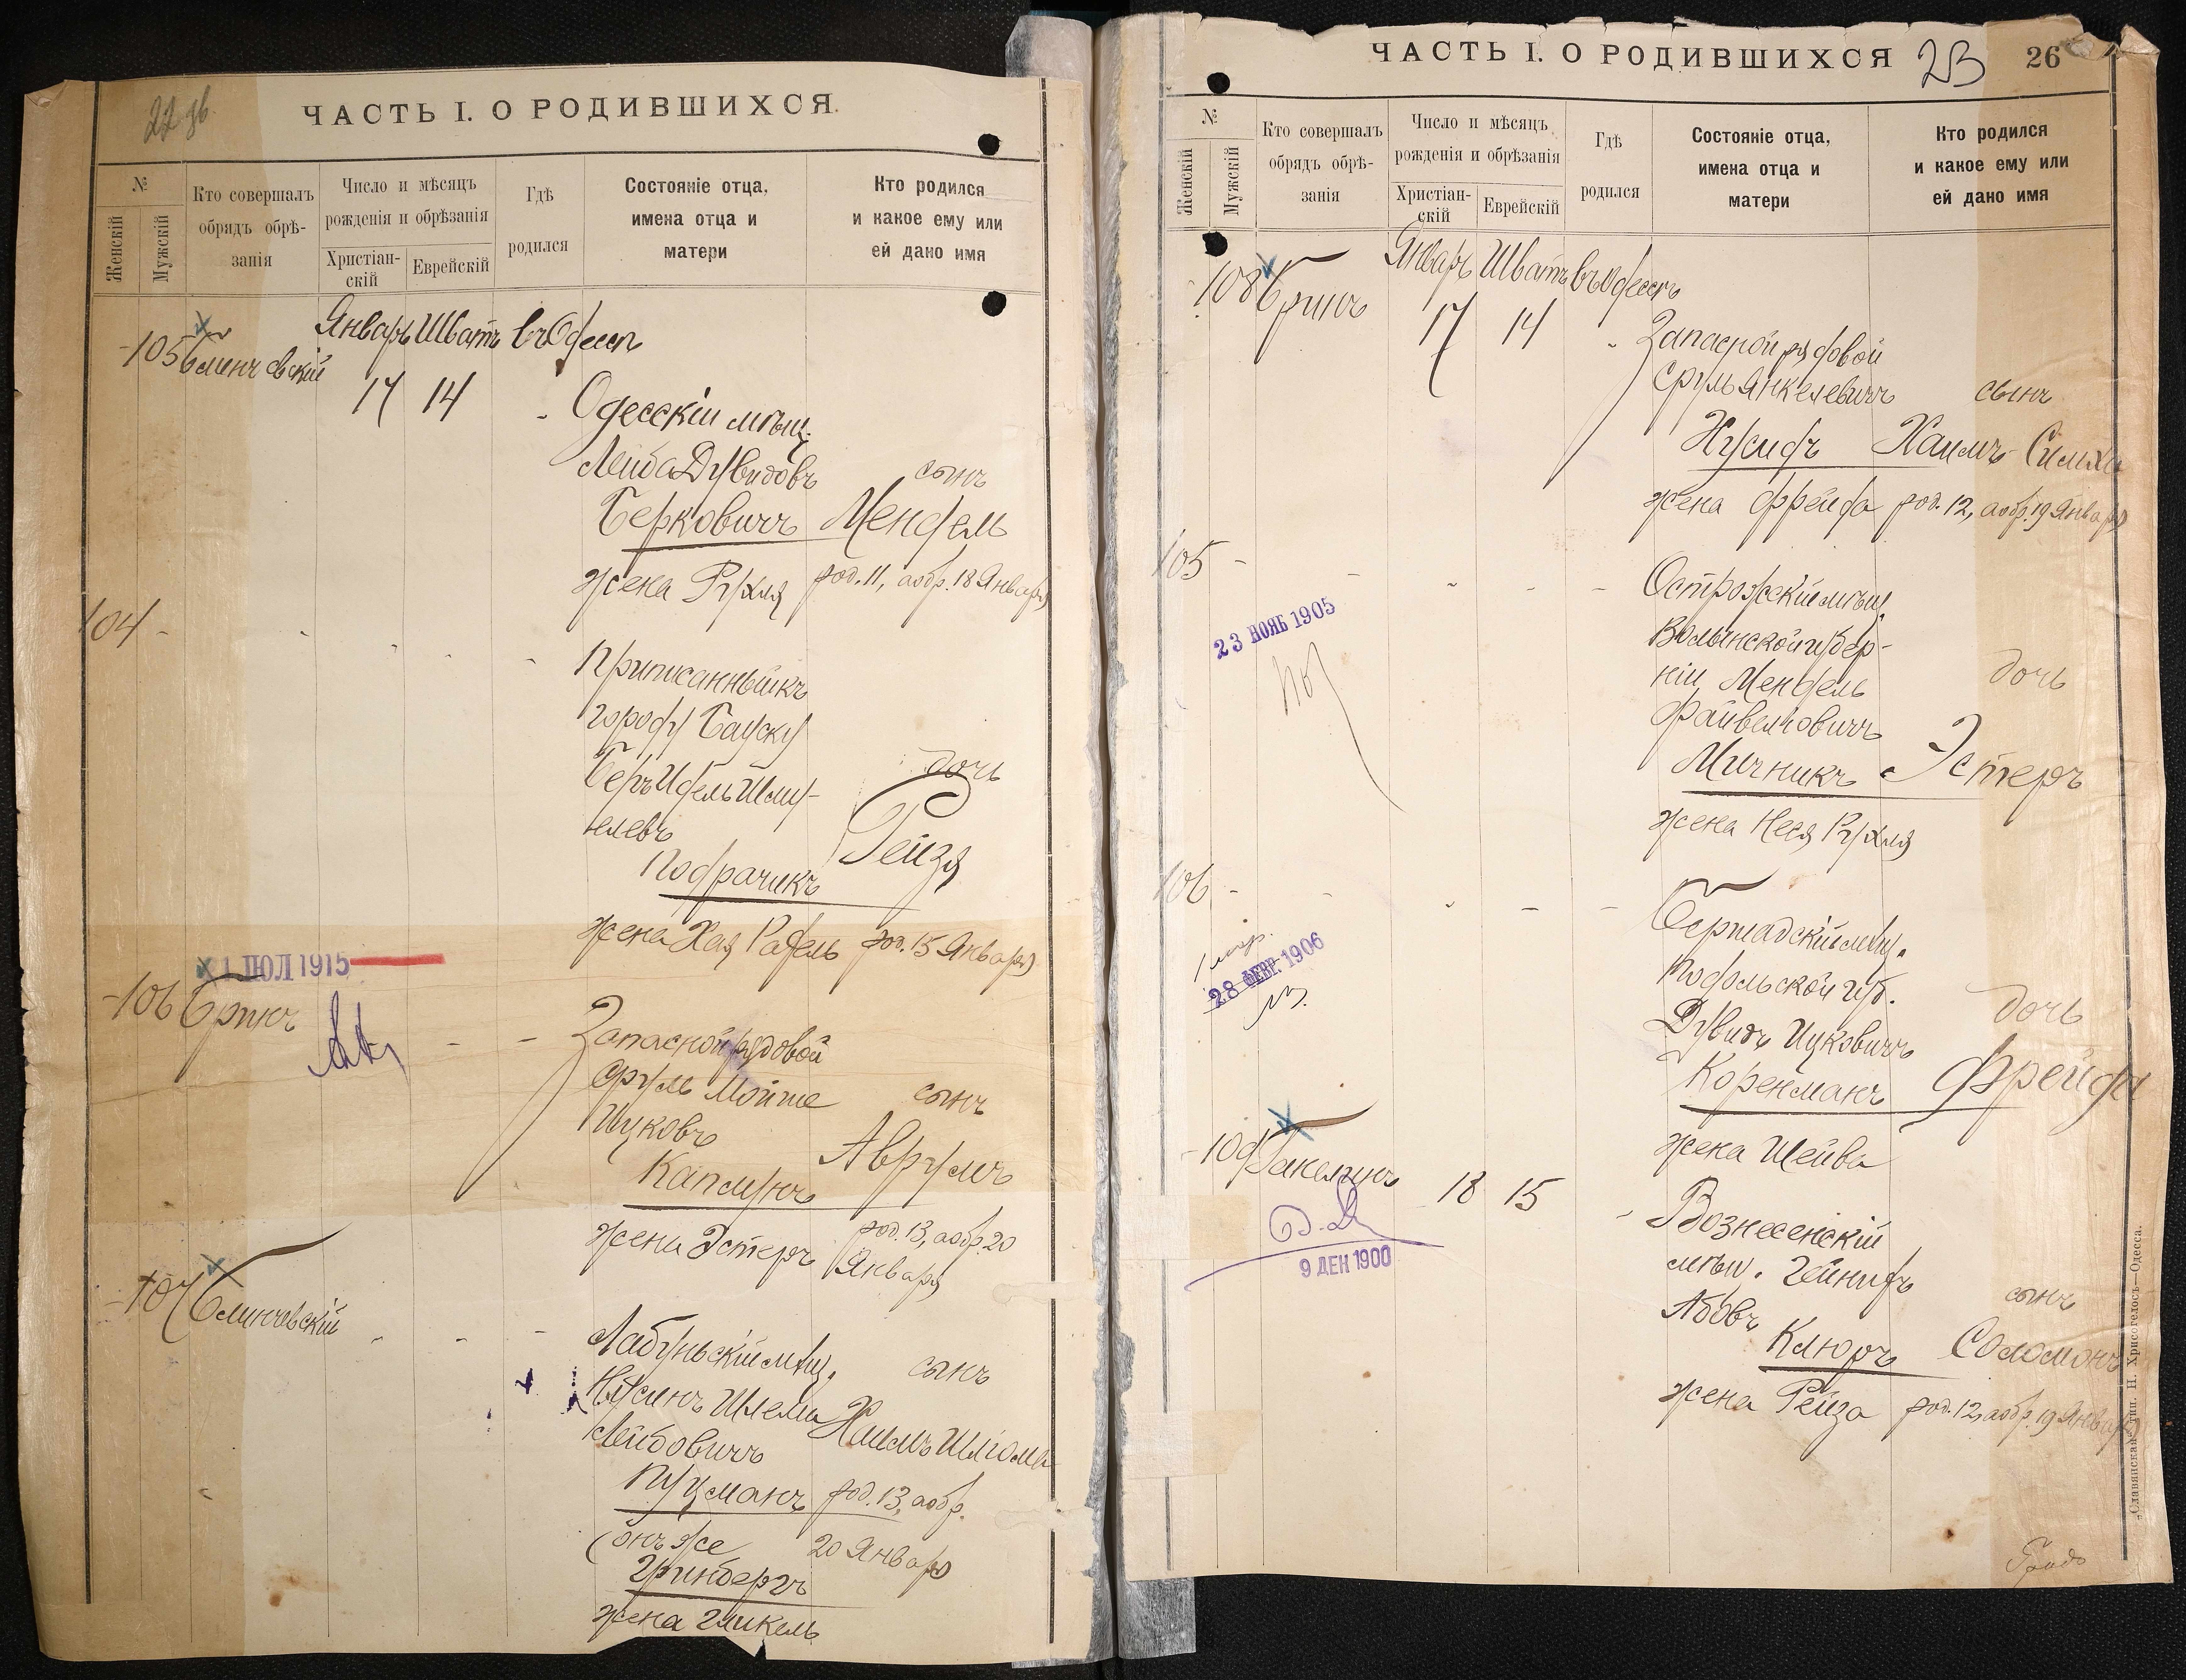 ЧАСТЬ I. О РОДИВШИХСЯ.
№
Женскій
Мужскій
Кто совершалъ
обрядъ обрѣ-
занія
Число и мѣсяцъ
рожденія и обрѣзанія
Христіан-
скій
Еврейскій
Гдѣ
родился
Состояніе отца,
имена отца и
матери
Кто родился
и какое ему или
ей дано имя
Январь Шватъ въ Одессѣ
105
17 14
Одесскій мѣщ.
Лейба Дувидовъ
сынъ
Берковичъ Мендель
жена Рухля род. 11, а обр. 18 Января
104
Приписанный къ
городу Бауску
Беръ Идель Шму-
дочь
елевъ
Рейзя
Подрачикъ
жена Хая Рахель род. 15 Января
1 ІЮЛ 1915
106 Бринъ
Запасной рядовой
Сруль Мойше
сынъ
Ицковъ
Аврумъ
Каплунъ
жена Эстеръ род. 13, а обр. 20
Января
107 Блинчевскій
Лабуньскій мѣщ.
сынъ
Нусинъ Шлема Хаимъ Шлома
Лейбовичъ
Пуцманъ род. 13, а обр.
(онъ же 20 Января
Гринбергъ
жена Гликель
ЧАСТЬ I. О РОДИВШИХСЯ
23
26
№
Женскій
Мужскій
Кто совершалъ
обрядъ обрѣ-
занія
Число и мѣсяцъ
рожденія и обрѣзанія
Христіан-
скій
Еврейскій
Гдѣ
родился
Состояніе отца,
имена отца и
матери
Кто родился
и какое ему или
ей дано имя
Январь Шватъ въ Одессѣ
108 Бринъ
17 14
Запасной рядовой
Сруль Янкелевичъ
сынъ
Нусифъ Хаимъ Симха
жена Фрейда род. 12, а обр. 19 Января
105
Острожскій мѣщ.
23 НОЯБ 1905
Волынской губер-
ніи Мендель
дочь
Файвелювичъ
Мичникъ Эстеръ
жена Неся Рухля
106
Бершадскій мѣщ.
28 ФЕВР. 1906
Подольской губ.
дочь
Дувидъ Ицковичъ
Коренманъ Фрейда
жена Шейва
109
18 15
Вознесенскій
9 ДЕК 1900
мѣщ. Гейнихъ
Абовъ
сынъ
Клюръ Соломонъ
жена Рейза род. 12, а обр. 19 Января
„Славянская“ тип. Н. Хрисогелосъ—Одесса.